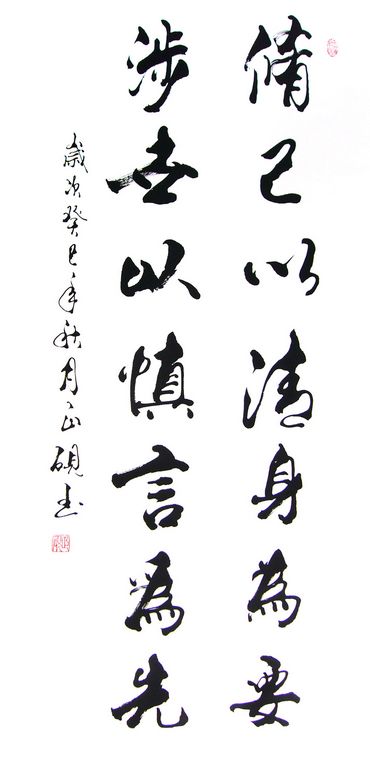 脩己以清身為要
涉世以慎言為先
歲次癸巳年秋月正硯書